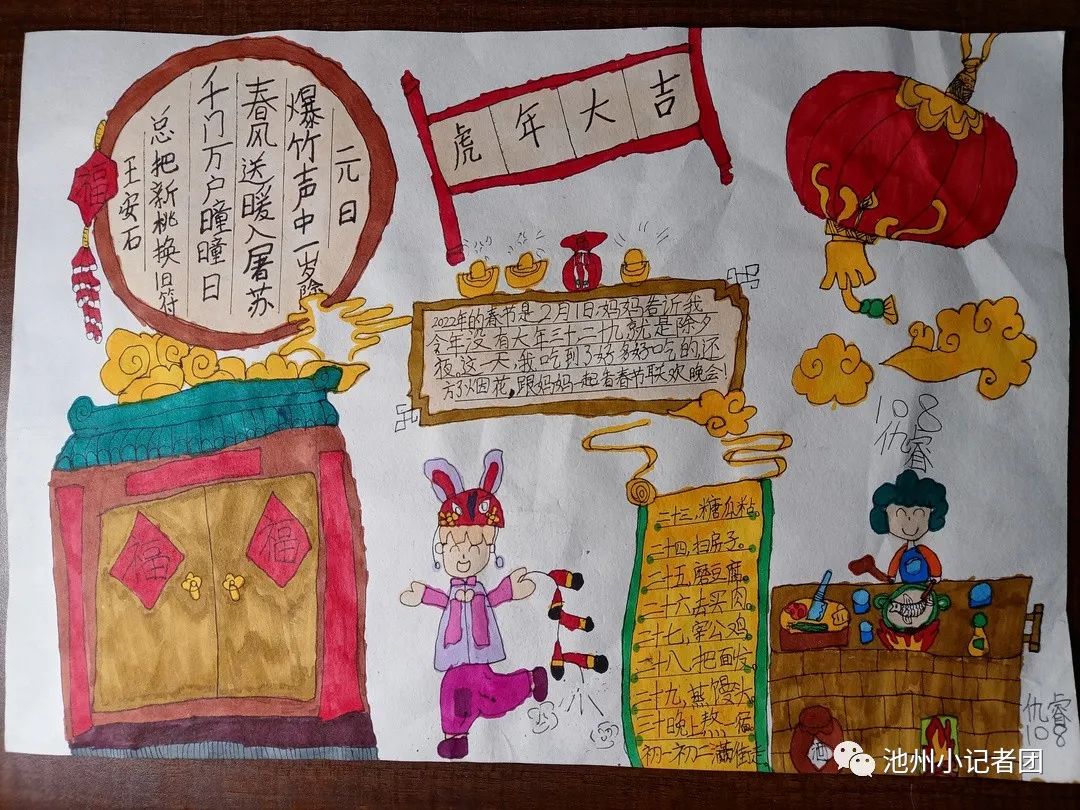 元日
爆竹声中一岁除
春风送暖入屠苏
千门万户瞳瞳日
总把新桃换旧符
王安石
福
虎年大吉
2022年的春节是2月1日,妈妈告诉我
今年没有大年三十二十九就是除夕
夜。这一天,我吃到了好多好吃的,还
方了烟花,跟妈妈一起看春节联欢晚会!
108
仇睿
福
福
二十三,糖瓜粘。
二十四,扫房子。
二十五,磨豆腐。
二十六去买肉
二十七,宰公鸡
二十八,把面发。
二十九,蒸馒头。
三十晚上熬一宿。
初一初二满街走
仇睿
108
池州小记者团